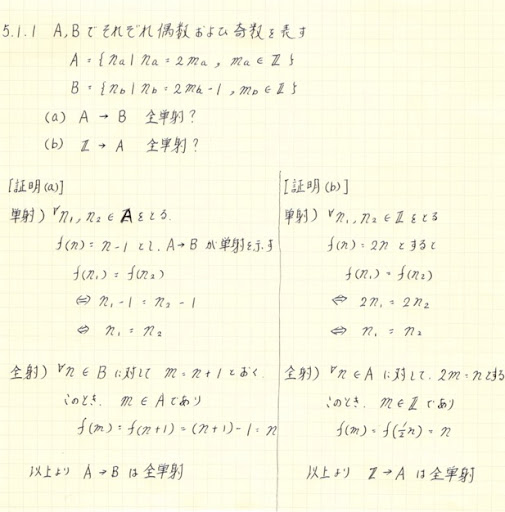 5.1.1 A,Bでそれぞれ偶数および奇数を表す
A = { n_a | n_a = 2m_a , m_a ∈ ℤ }
B = { n_b | n_b = 2m_b - 1 , m_b ∈ ℤ }
(a) A → B 全単射?
(b) ℤ → A 全単射?
[証明(a)]
単射) ∀n₁, n₂ ∈ A をとる.
f(n) = n - 1 とし、A→B が単射を示す
f(n₁) = f(n₂)
⇔ n₁ - 1 = n₂ - 1
⇔ n₁ = n₂
全射) ∀n ∈ B に対して m = n + 1 とおく.
このとき、m ∈ A であり
f(m) = f(n+1) = (n+1) - 1 = n
以上より A → B は全単射
[証明(b)]
単射) ∀n₁, n₂ ∈ ℤ をとる
f(n) = 2n とすると
f(n₁) = f(n₂)
⇔ 2n₁ = 2n₂
⇔ n₁ = n₂
全射) ∀n ∈ A に対して、2m = n とする
このとき、m ∈ ℤ であり
f(m) = f(½n) = n
以上より ℤ → A は全単射